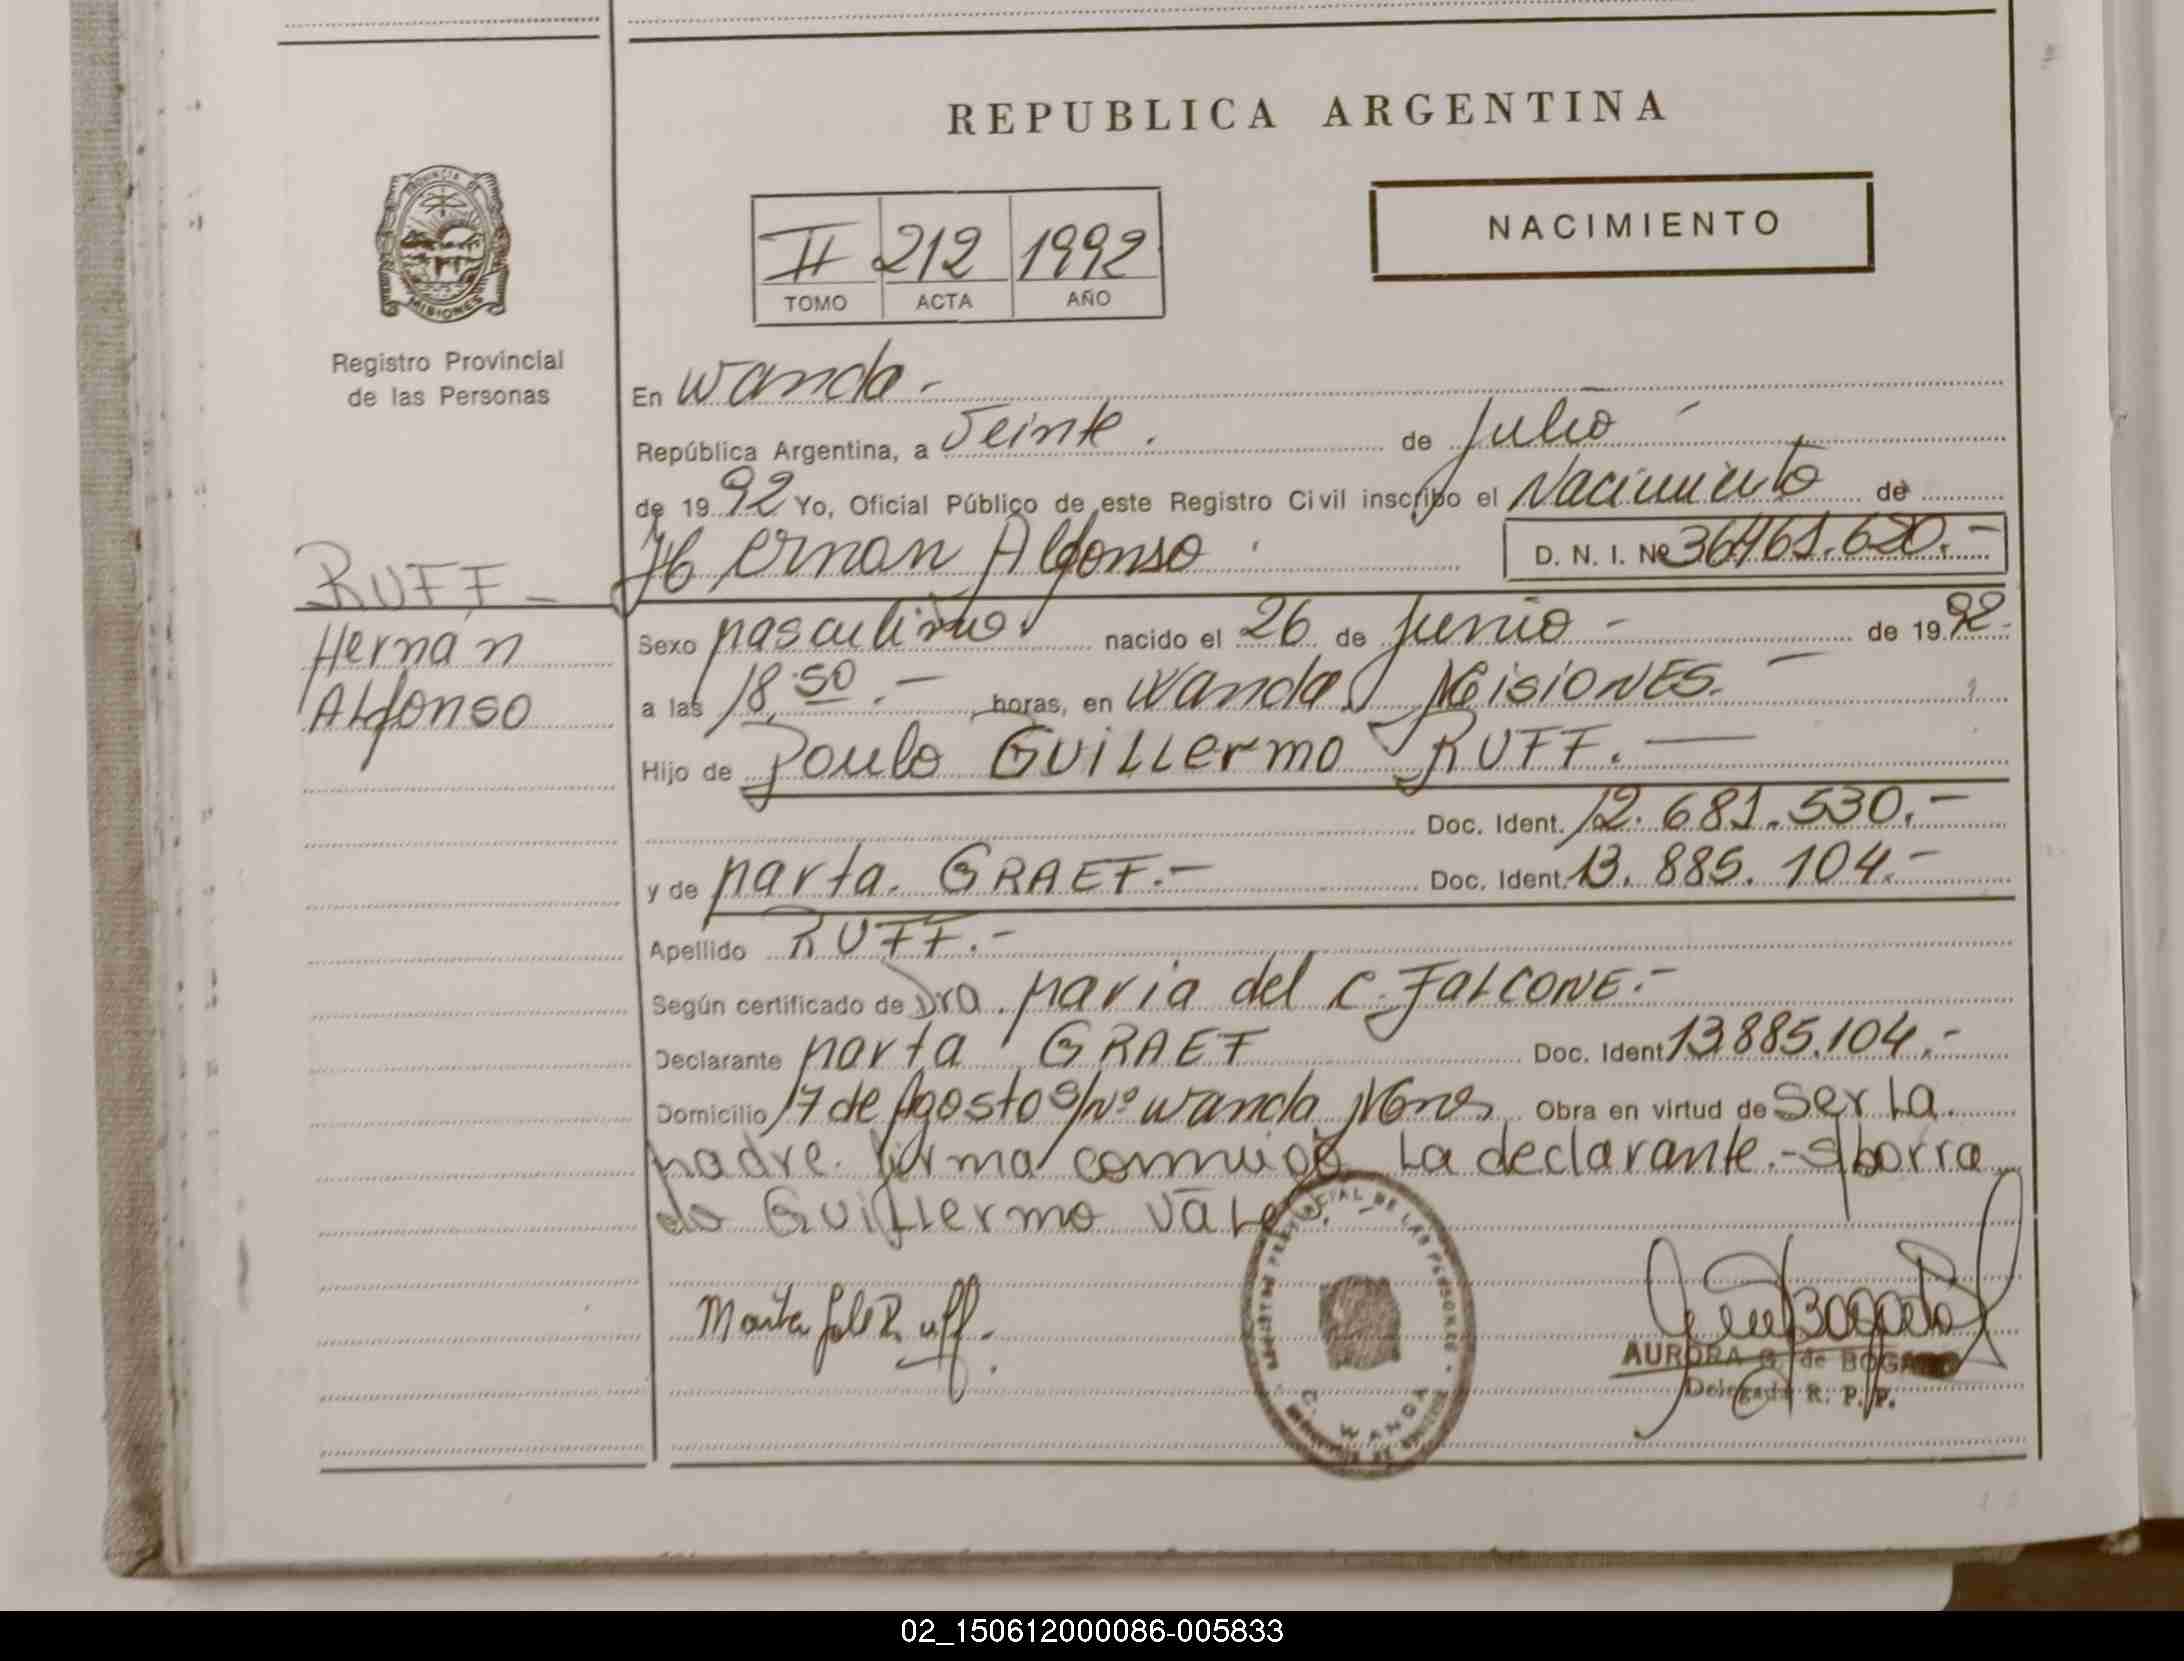 REPUBLICA ARGENTINA
PROVINCIA DE
MISIONES
Registro Provincial
de las Personas
II 212 1992
TOMO ACTA AÑO
NACIMIENTO
En Wanda.-
República Argentina, a Veinte. de Julio -
de 1992 Yo, Oficial Público de este Registro Civil inscribo el Nacimiento de
Hernan Alfonso D. N. I. Nº 36461.680.-
RUFF -
Hernán
Alfonso
Sexo masculino nacido el 26 de Junio - de 1992.
a las 18,50.- horas, en Wanda, Misiones. -
Hijo de Paulo Guillermo RUFF. -
Doc. Ident. 12.681.530.-
y de Marta. GRAEF.- Doc. Ident. 13.885.104.-
Apellido RUFF.-
Según certificado de Dra. Maria del C. FALCONE.-
Declarante Marta GRAEF Doc. Ident 13885.104.-
Domicilio 17 de Agosto S/Nº Wanda Mnes Obra en virtud de Ser La
Madre. Firma conmigo La declarante.- S/borra
do Guillermo Vale.-
Marta Ruff.
REGISTRO PROVINCIAL DE LAS PERSONAS
WANDA
AURORA G. de BOGADO
Delegada R. P. P.
02_150612000086-005833